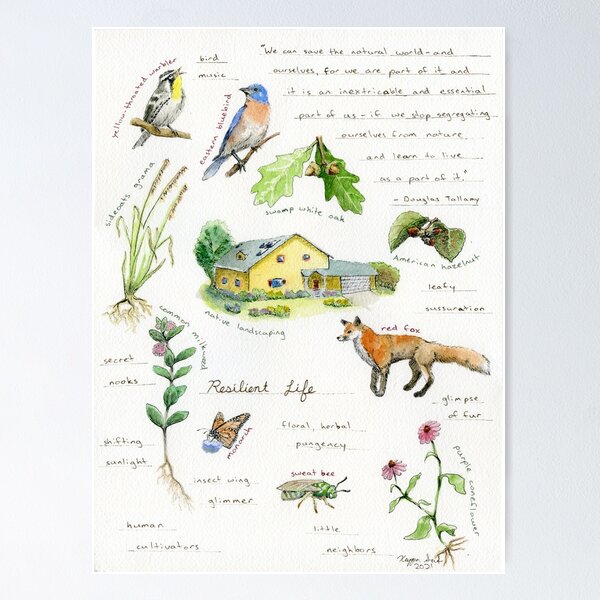 "We can save the natural world - and
ourselves, for we are part of it and
it is an inextricable and essential
part of us - if we stop segregating
ourselves from nature
and learn to live
as a part of it."
- Douglas Tallamy
bird
music
yellow-throated warbler
eastern bluebird
sideoats grama
swamp white oak
American hazelnut
leafy
sussuration
native landscaping
common milkweed
red fox
secret
nooks
Resilient Life
glimpse
of fur
shifting
sunlight
monarch
floral, herbal
pungency
purple coneflower
insect wing
glimmer
sweat bee
human
cultivators
little
neighbors
2021